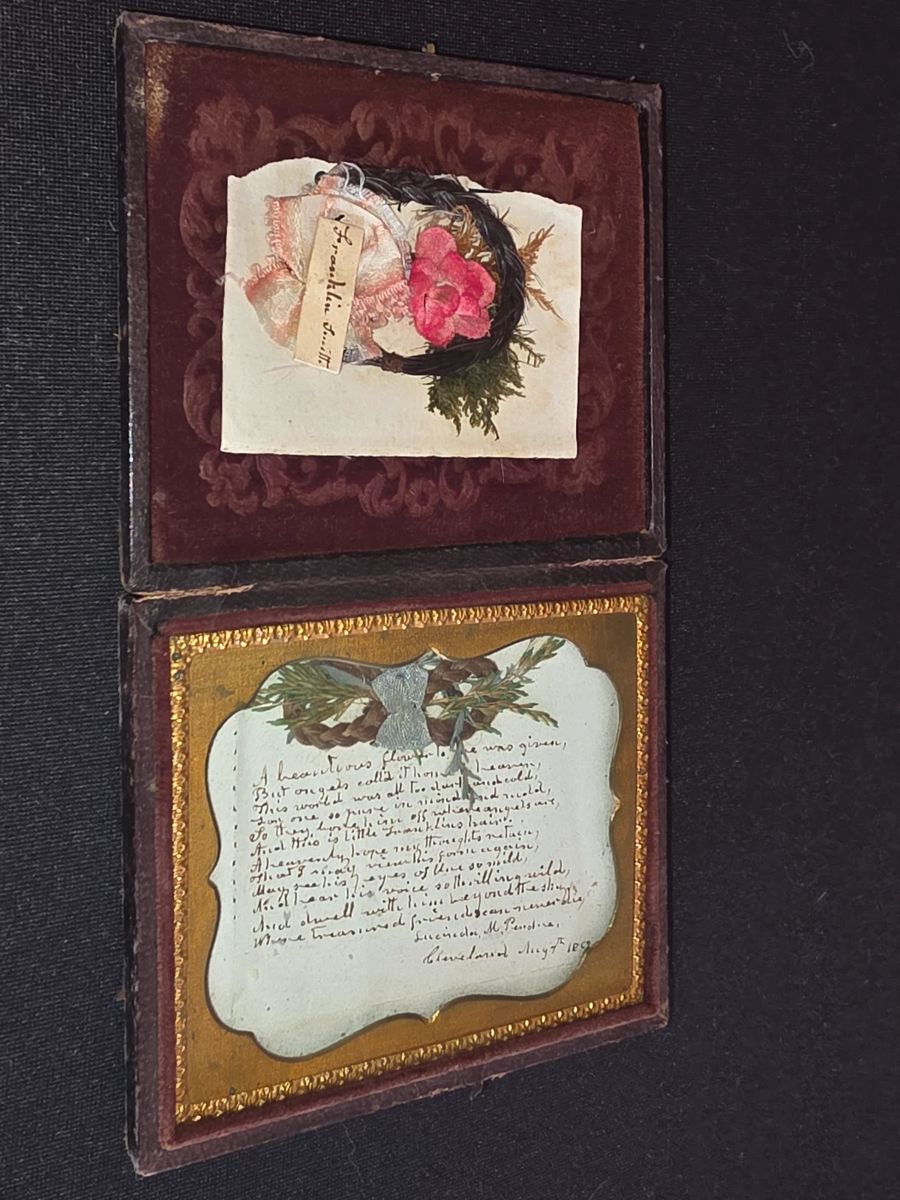 Franklin Smith
A beauteous flower to me was given,
But angels calld it home to heaven,
This world was all too dark and cold,
For one so pure in mind and mold,
So they bore him off where angels are,
And this is little Franklins hair.
A heavenly hope my thoughts retain,
That I may view his form again,
May see his eyes of blue so mild,
And hear his voice so thrilling wild,
And dwell with him beyond the sky,
Where treasured friends can never die,
Lucinda, M. Perdue,
Cleveland Aug 7th